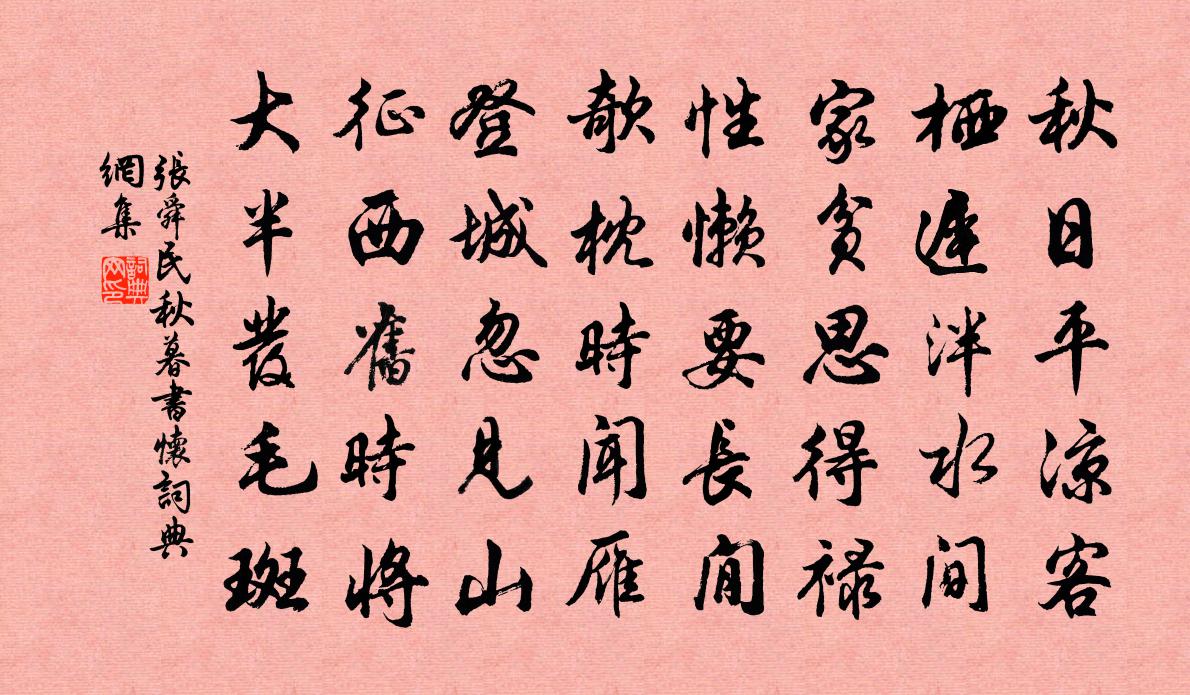 秋日平凉客
栖遲泮水間
家貧思得禄
性懶要長閒
欹枕時聞雁
登城忽見山
征西舊時將
大半發毛斑
張舜民秋暮書懷詞典
網集
詞典
网印